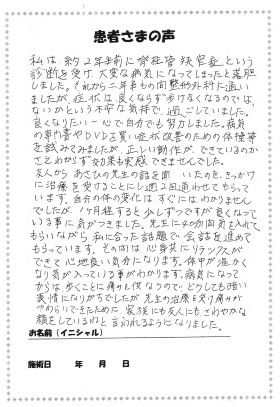 患者さまの声
私は、約2年半前に脊柱管狭窄症という
診断を受け、大変な病気になってしまったと落胆
しました。それから二年半もの間整形外科に通い
ましたが、症状は良くならず歩けなくなるのでは、な
いかという不安な気持で過ごしていました。
良くなりたい一心で自分でも努力しました。病気
の専門書やDVDを買い症状改善のための体操等
を試みてみましたが、正しい動作が、できているのか
さえわからず効果も実感できませんでした。
友人からあさひの先生の話を聞いたのをきっかけ
に治療を受けることにし週2回通わせてもらって
います。自分の体の変化はすぐにはわかりません
でしたが、1ヶ月程すると少しずつですが良くなって
いる事に気がつきました。先生に40分間気を入れて
もらいながら私に合った話題で会話を進めて
もらっています。その間は心身共にリラックスが
できて心地良い気分になります。体中が温かく
なり気が入っている事がわかります。病気になって
からは歩くことに痛みも伴なうので、どうしても暗い
表情になりがちでしたが先生の治療を受け痛みが
やわらいできたために、家族にも友人にもさわやかな
顔をしているねと言われるようになりました。
お名前（イニシャル）
施術日　年　月　日